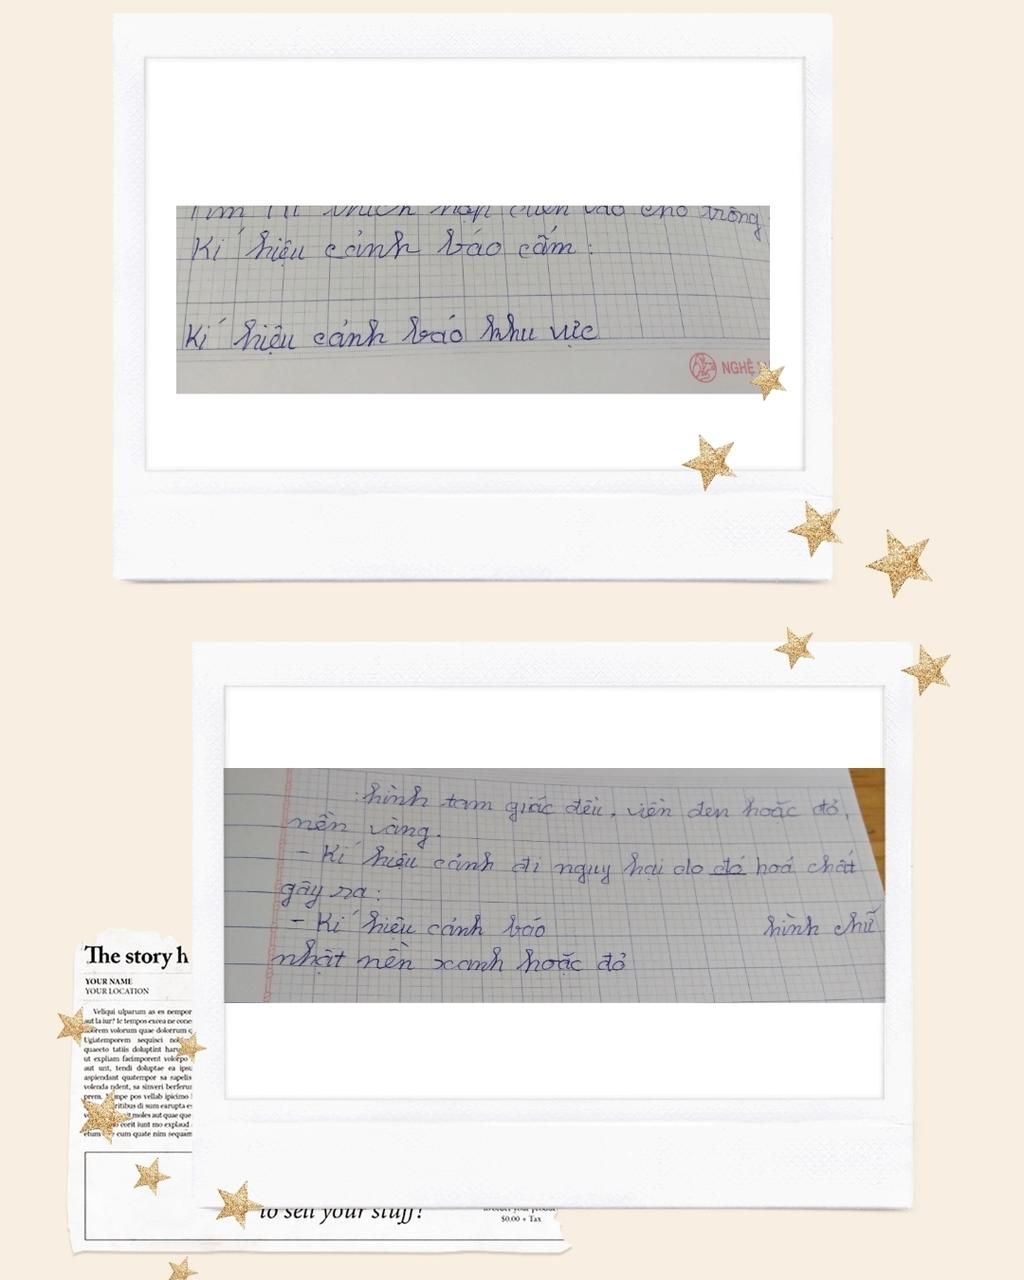 Tìm TN thích hợp điền vào chỗ trống
Kí hiệu cảnh báo cấm :
Kí hiệu cảnh báo khu vực
NGHỆ
: hình tam giác đều, viền đen hoặc đỏ,
nền vàng.
- Kí hiệu cảnh đi nguy hại do đó hoá chất
gây ra :
- Kí hiệu cảnh báo hình chữ
nhật nền xanh hoặc đỏ
The story h
YOUR NAME
YOUR LOCATION
Veliqui ulparum as es nempor
aut la iur? Ic tempos excea ne cone
volorum quia dolorrum q
Ugiatemporem sequisci
quaecto tatiis doluptint
ut expliam facimporent volorpo
aut unt, tendi doluptae ea ipsu
aspiendant quatempor sa sapelis
volenda ndent, sa sinveri berferum
prem. pos vellab ipicimo
oritibus di sum earupta es
moles aut quae que
corit iunt mo explaud
etum cum quate nim sequiam
to sell your stuff!
$0.00 + Tax